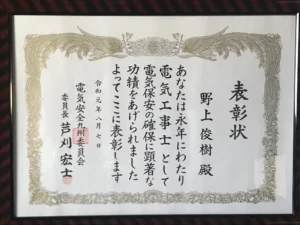 表彰状
野上俊樹 殿
あなたは永年にわたり
電気工事士として
電気保安の確保に顕著な
功績をあげられました
よってここに表彰します
令和元年八月七日
電気安全九州委員会
委員長 芦刈宏士